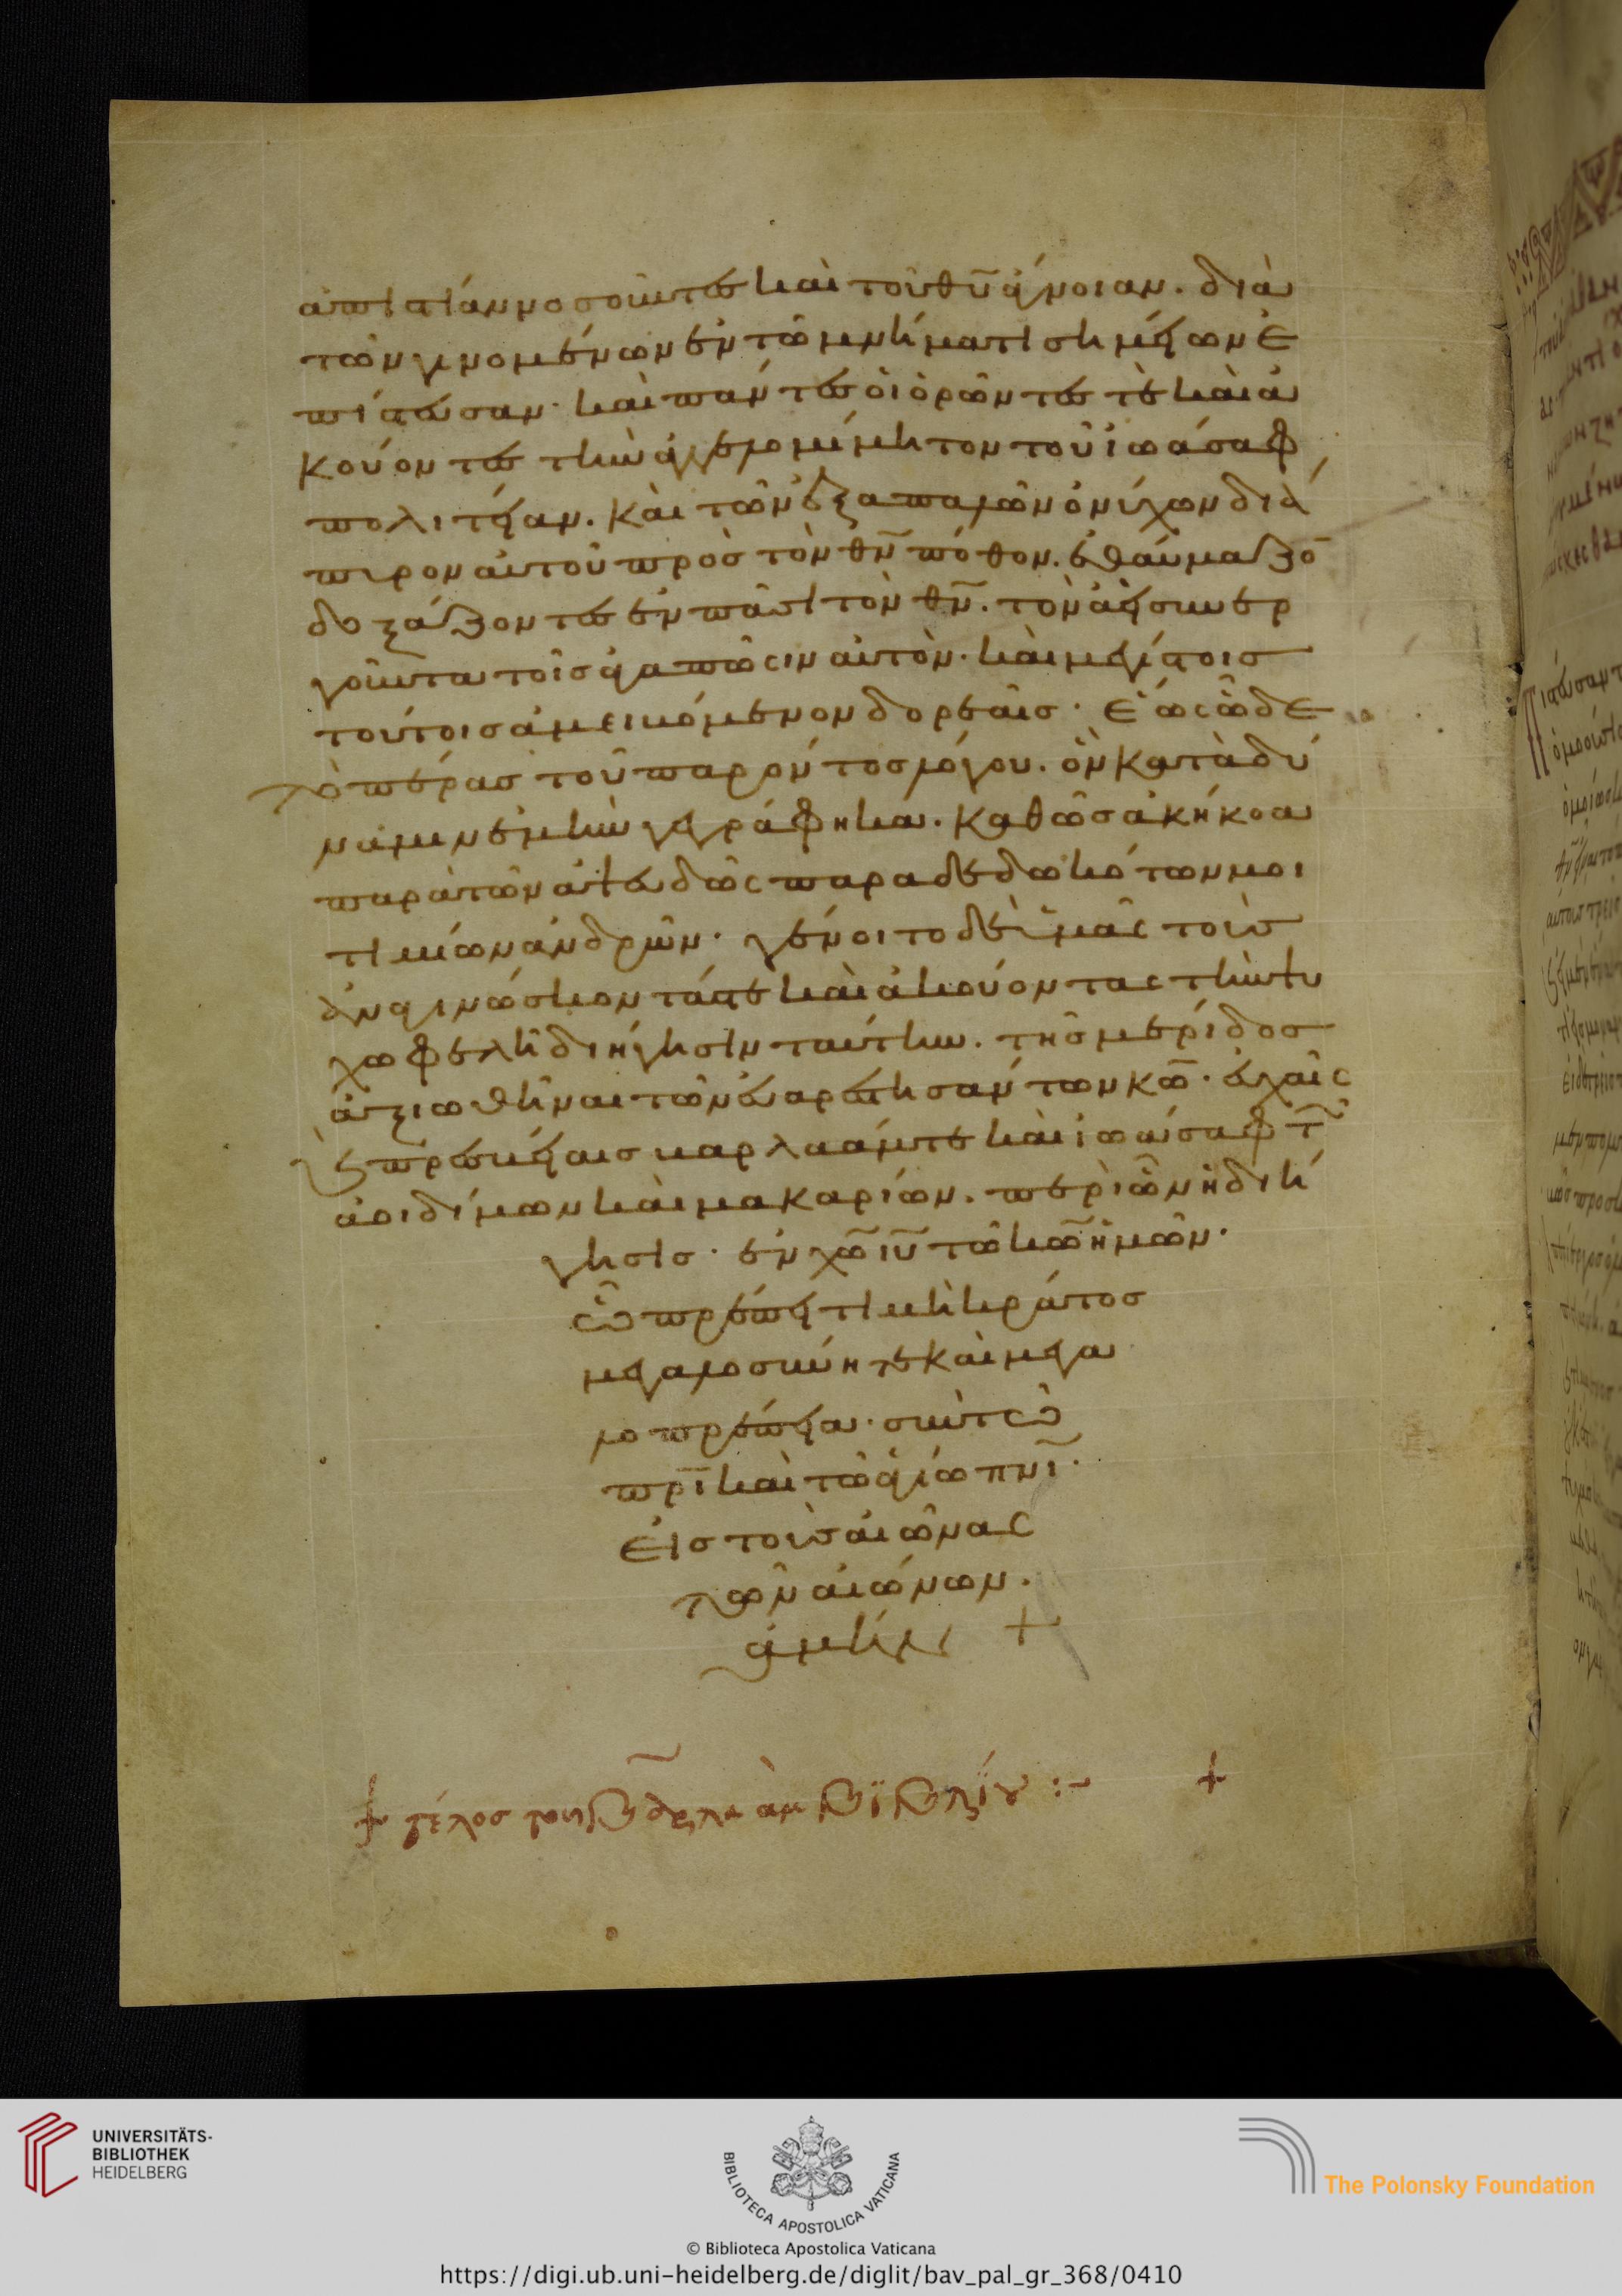 ἀπιστίαν νοσοῦντες καὶ τοῦ θυ̅ ἄγνοιαν. διὰ
τῶν γινομένων ἐν τῶ μνήματι σημείων ἐ
πίστευσαν· καὶ πάντες οἱ ὁρῶντες τὲ καὶ ἀ
κούοντες τὴν ἀγγελομίμητον τοῦ ἰωάσαφ
πολιτείαν. καὶ τῶν ἐξ ἁπαλῶν ὀνύχων διά
πυρον αὐτοῦ πρὸς τὸν θν̅ πόθον. ἐθαύμαζο̅
δοξάζοντες ἐν πᾶσι τὸν θν̅. τὸν ἀεὶ συνερ
γοῦντα τοῖς ἀγαπῶσιν αὐτὸν· καὶ μεγίσταις
τούτοις ἀμειβόμενον δορεαῖς· ἕως ὧδε
τὸ πέρας τοῦ παρόντος λόγου. ὃν κατὰ δύ
ναμιν ἐμὴν γεγράφηκα. καθὼς ἀκήκοα
παρὰ τῶν ἀψευδῶς παραδεδωκότων μοι
τιμίων ἀνδρῶν· γένοιτο δὲ ἡμᾶς τοὺς
ἀναγινώσκοντάς τε καὶ ἀκούοντας τὴν ψυ
χωφελῆ διήγησιν ταύτην. τῆς μερίδος
ἀξιωθῆναι τῶν εὐαρεστησάντων κω̅· εὐχαῖς
καὶ πρεσβείαις βαρλαάμ τε καὶ ἰωάσαφ τ̅
ἀοιδίμων καὶ μακαρίων. περὶ ὧν ἡ διή
γησις· ἐν χω̅ ιυ̅ τῶ κω̅ ἡμῶν·
ὧ πρέπει τιμὴ κράτος
μεγαλοσύνη τε καὶ μεγα
λοπρέπεια· σὺν τῶ
πρι̅ καὶ τῶ ἁγίω πνι̅·
εἰς τοὺς αἰῶνας
τῶν αἰώνων·
ἀμήν +
+ τέλος τοῦ βαρλαὰμ βϊβλίου :~ +
UNIVERSITÄTS-
BIBLIOTHEK
HEIDELBERG
BIBLIOTECA APOSTOLICA VATICANA
The Polonsky Foundation
© Biblioteca Apostolica Vaticana
https://digi.ub.uni-heidelberg.de/diglit/bav_pal_gr_368/0410